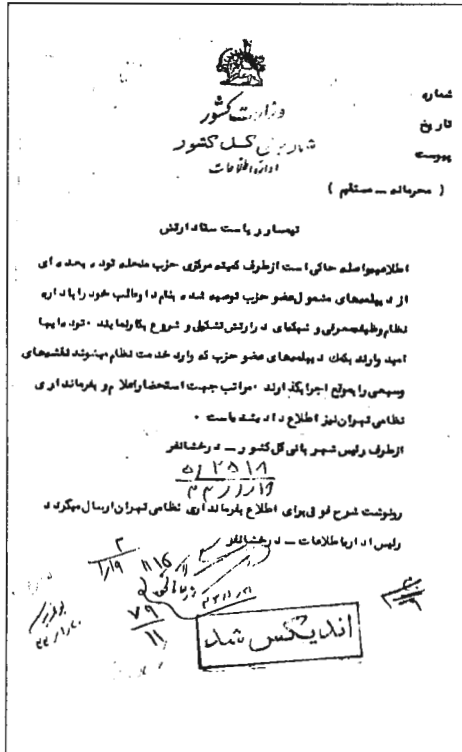 وزارت کشور
شهربانی کل کشور
اداره اطلاعات
شماره
تاریخ
پیوست
( محرمانه ــ مستقیم )
تیمسار ریاست ستاد ارتش
اطلاعیه واصله حاکی است از طرف کمیته مرکزی حزب منحله توده بعده ای
از دیپلمه‌های مشمول عضو حزب توصیه شده بنام داوطلب خود را باداره
نظام وظیفه معرفی و شبکه‌ای در ارتش تشکیل و شروع بکار نمایند ۰ توده ایها
امیدوارند بکمک دیپلمه‌های عضو حزب که وارد خدمت نظام میشوند نقشه‌های
وسیعی را بموقع اجرا بگذارند ۰ مراتب جهت استحضار اعلام و بفرمانداری
نظامی تهران نیز اطلاع داده شده است ۰
از طرف رئیس شهربانی کل کشور ــ درخشانفر
۵/۲۵۱۸
رونوشت شرح فوق برای اطلاع بفرمانداری نظامی تهران ارسال میگردد
رئیس اداره اطلاعات ــ درخشانفر
۷۹
۱۱
اندیکس شد